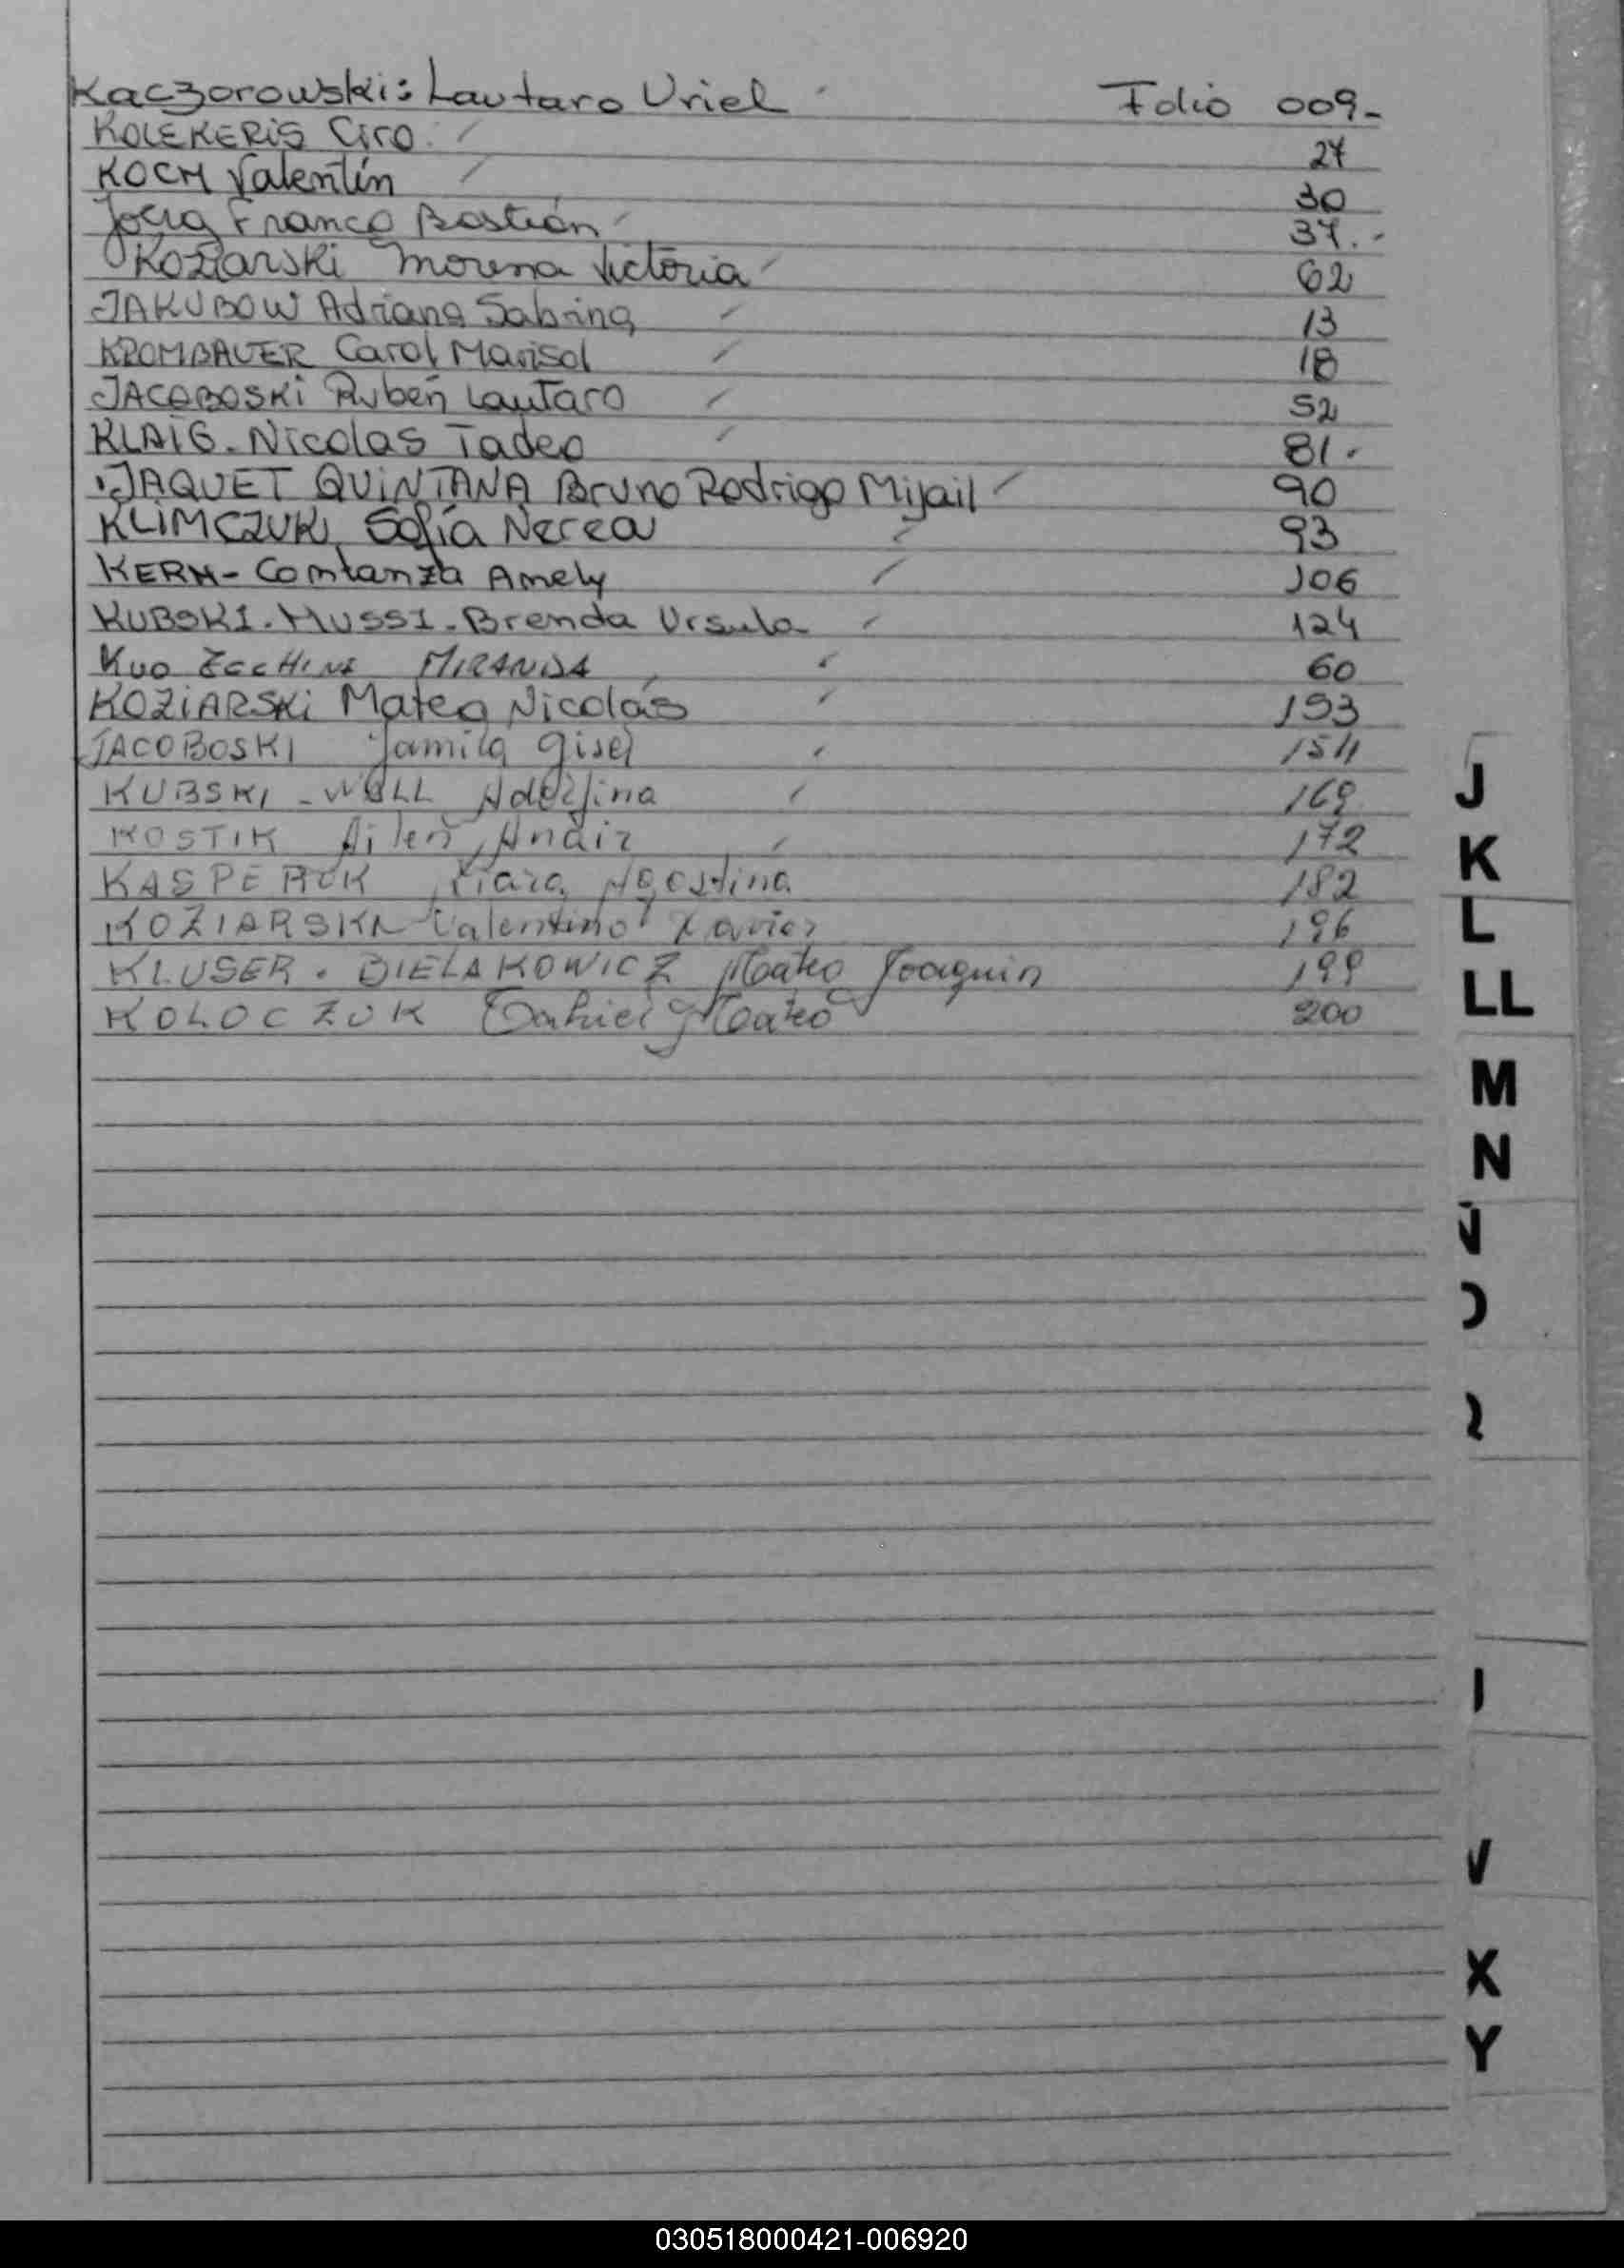 Kaczorowski: Lautaro Uriel Folio 009-
KOLEKERIS Ciro 27
KOCH Valentín 30
Franco Bastián 37.-
Koziarski Morena Victoria 62
JAKUBOW Adriana Sabrina 13
KROMBAUER Carol Marisol 18
JACOBOSKI Rubén Lautaro 52
KLAIG. Nicolas Tadeo 81.
JAQUET QUINTANA Bruno Rodrigo Mijail 90
KLIMCZUK, Sofía Nerea 93
KERN- Contanza Amely 106
KUBSKI. MUSSI. Brenda Ursula 124
Kuo ZECCHINI MIRANDA 60
KOZIARSKI Mateo Nicolás 153
JACOBOSKI Jamila Gisel 154
J
KUBSKI - WELL 169
KOSTIK Ailen, Anair 172
K
KASPERUK Kiara Agostina 182
KOZIARSKI Valentino Xavier 196
L
KLUSER. BIELAKOWICZ Mateo Joaquin 199
LL
KOLOCZUK Mateo 200
M
N
X
Y
030518000421-006920